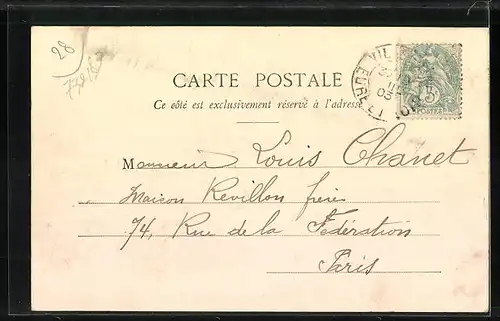 28
CARTE POSTALE
Ce côté est exclusivement réservé à l'adresse
5
POSTES
Monsieur Louis Chanet
Maison Revillon frères
74, Rue de la Fédération
Paris